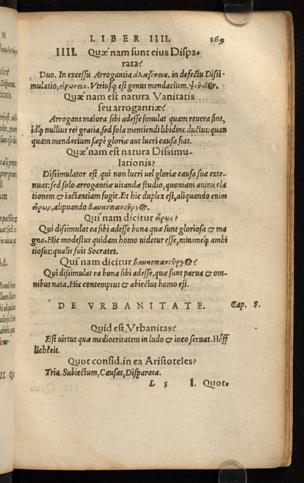 LIBER IIII. 169
IIII. Quæ'nam sunt eius Dispa-
rata?
Duo, In excessu Arrogantia ἀλαζονεία, in defectu Dissi-
mulatio, εἰρωνεία. Vtriusq; est genus mendacium, ψεῦδος.
Quæ'nam est natura Vanitatis
seu arrogantiæ?
Arrogans maiora sibi adesse simulat quam reuera sint,
idq; nullius rei gratia, sed sola mentiendi libidine ductus: quan
quam mendacium sæpe gloriæ aut lucri causa fiat.
Quæ'nam est natura Dissimu-
lationis?
Dissimulator est qui non lucri uel gloriæ causa sua exte-
nuat: sed solo arrogantiæ uitandæ studio, quoniam animi ela
tionem & iactantiam fugit. Et hic duplex est, aliquando enim
εἴρων, aliquando βαυκοπανοῦργος.
Qui'nam dicitur εἴρων?
Qui dissimulat ea sibi adesse bona quæ sunt gloriosa & ma
gna. Hic modestus quidam homo uidetur esse, minimeq; ambi
tiosus: qualis fuit Socrates.
Qui'nam dicitur βαυκοπανοῦργος?
Qui dissimulat ea bona sibi adesse, quæ sunt parua & om-
nibus nota. Hic contemptus & abiectus homo est.
DE VRBANITATE. Cap. 8.
Quid est, Vrbanitas?
Est uirtus quæ mediocritatem in ludo & ioco seruat. Höff
lichkeit.
Quot consid. in ea Aristoteles?
Tria. Subiectum, Causas, Disparata.
L 5 I. Quot-